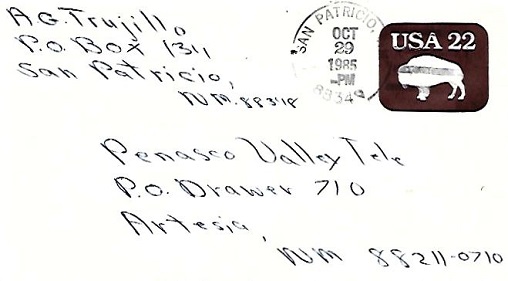 A.G. Trujillo
P.O. Box 1311
San Patricio,
NM. 88348
SAN PATRICIO,
OCT
29
1985
PM
88348
USA 22
Penasco Valley Tele
P.O. Drawer 710
Artesia,
NM 88211-0710